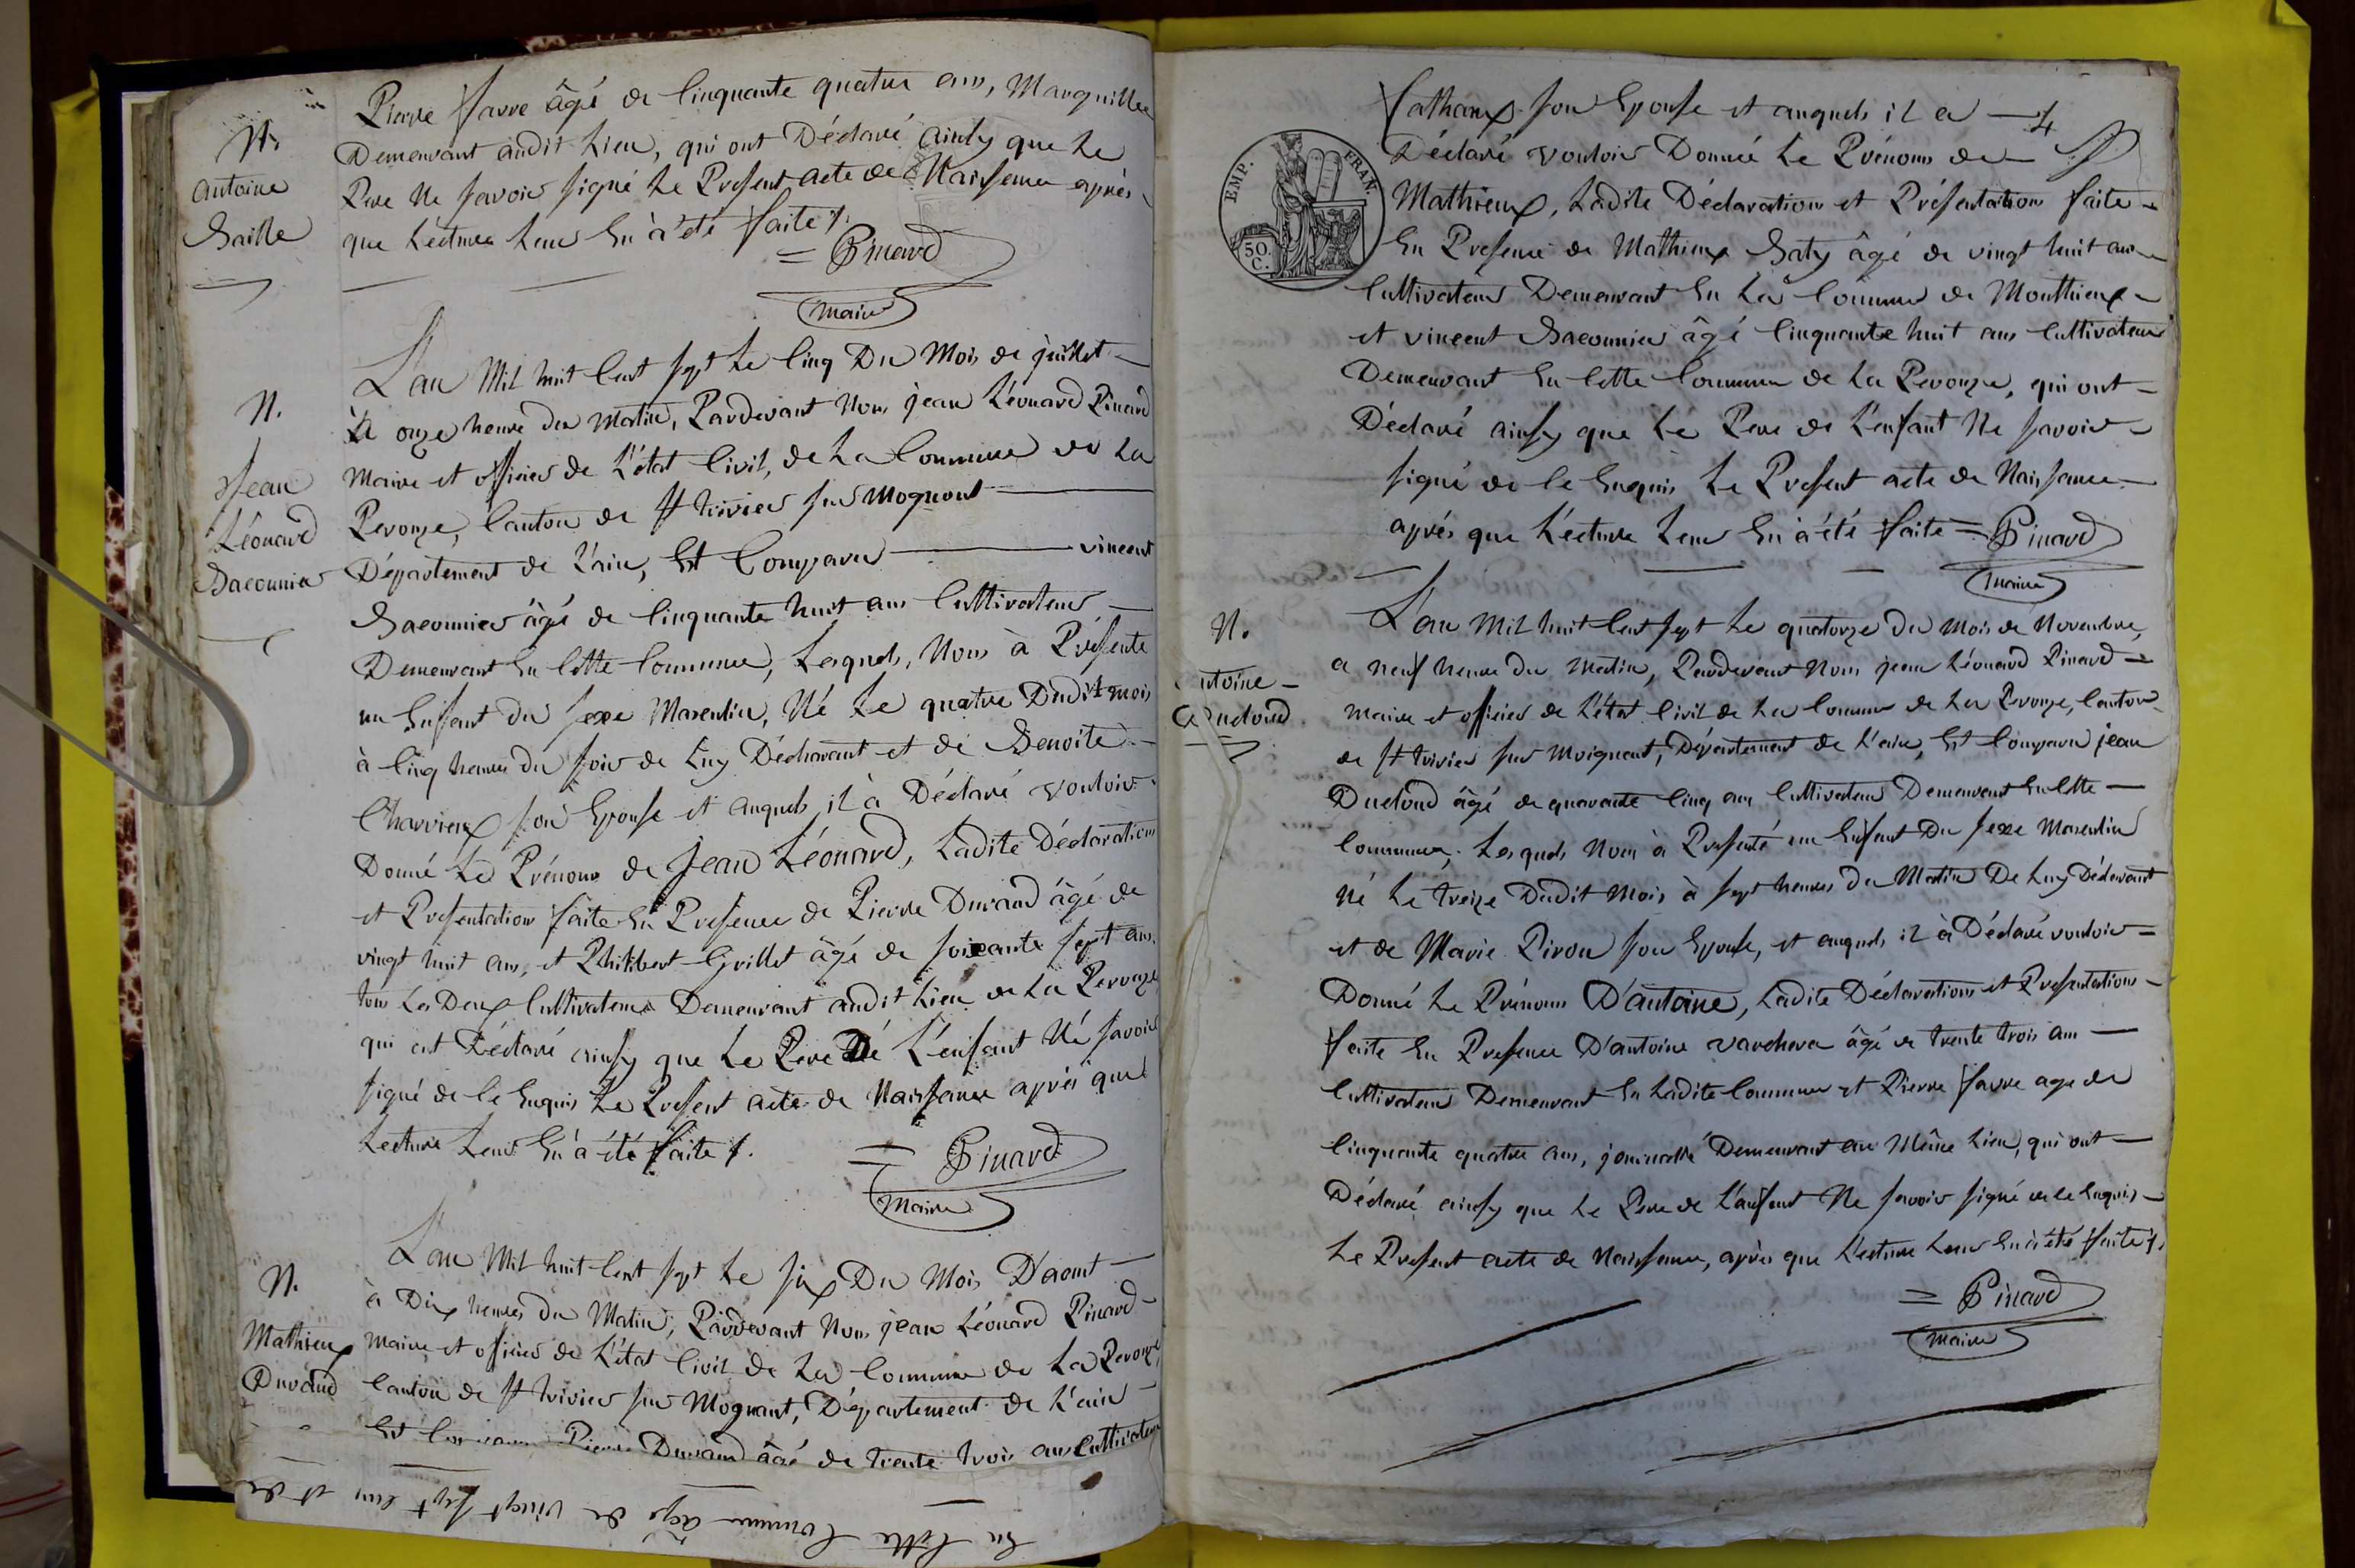 N.
antoine
Baille
Pierre favre âgé de Cinquante quatre ans, Marguillier
Demeurant audit Lieu, qui ont Déclaré ainsy que Le
Pere Ne savoir signé Le Present acte de Naissance après
que Lecture Leur En à été faite /.
= Pinard
Maire
N.
Jean
Léonard
Baconnier
L'an Mil huit Cent sept Le Cinq Du Mois de juillet —
à onze heure du matin, Pardevant Nous jean Léonard Pinard
Maire et officier de L'état Civil, de La Commune de La
Perouze, Canton de St trivier sur Mognont —
Département de L'ain, Est Comparu — vincent
Baconnier âgé de Cinquante huit ans Cultivateur —
Demeurant En Cette Commune, Lesquels, Nous à Présenté
un Enfant du sexe Masculin, Né Le quatre Dudit mois
à Cinq heures du soir de Luy Déclarant et de Benoite —
Charvieux son Epouse et auquels il à Déclaré vouloir
Donné Le Prénoms de Jean Léonard, Ladite Déclaration
et Presentation faite En Presence de Pierre Durand âgé de
vingt huit ans, et Philibert Grillet âgé de soixante sept ans
tous Les Deux Cultivateurs Demeurant audit Lieu de La Perouze
qui ont Déclaré ainsy que Le Pere De L'enfant Né savoir
signé de Ce Enquis Le Present acte de Naissance après que
Lecture Leur En à été faite /.
= Pinard
Maire
N.
Mathieux
Durand
L'an Mil huit Cent sept Le six Du Mois D'aout —
à Dix heures du Matin, Pardevant Nous jean Léonard Pinard —
Maire et officier de L'état Civil de La Commune de La Perouze,
Canton de St trivier sur Mognant, Département de L'ain —
Est Comparu Pierre Durand âgé de trente trois ans Cultivateur
En Cette Commune âgé de vingt sept ans et de
son Epouse et auquels il a — 4
EMP. FRAN.
50 C.
Déclaré vouloir Donné Le Prénoms de —
Mathieux, Ladite Déclaration et Présentation faite —
En Presence de Mathieux Baty âgé de vingt huit ans —
Cultivateur Demeurant En La Commune de Monthieux —
et vincent Baconnier âgé Cinquante huit ans Cultivateur
Demeurant En Cette Commune de La Perouze, qui ont —
Déclaré ainsy que Le Pere de L'enfant Ne savoir —
signé de Ce Enquis Le Present acte de Naissance —
après que Lecture Leur En à été faite = Pinard
Maire
N.
L'an Mil huit Cent sept Le quatorze du mois de Novembre,
a neuf heure du Matin, Pardevant Nous jean Léonard Pinard —
maire et officier de L'état Civil de La Commune de La Perouze, Canton
de St trivier sur Moignant, Département de L'ain, Est Comparu jean
Ducloud âgé de quarante Cinq ans Cultivateur Demeurant En Cette —
Commune, Lesquels Nous à Presenté un Enfant Du sexe Masculin
né Le treize Dudit Mois à sept heures du Matin De Luy Déclarant
et de Marie Piron son Epouse, et auquels il à Déclaré vouloir —
Donné Le Prénoms D'antoine, Ladite Déclarations et Presentations —
faite En Presence D'antoine varchera âgé de trente trois ans —
Cultivateur Demeurant En Ladite Commune et Pierre favre age de
Cinquante quatre ans, Demeurant au Même Lieu, qui ont —
Déclaré ainsy que Le Pere de L'enfant Ne savoir signé de Ce Enquis —
Le Present acte de Naissance, après que Lecture Leur En à été faite /.
= Pinard
Maire